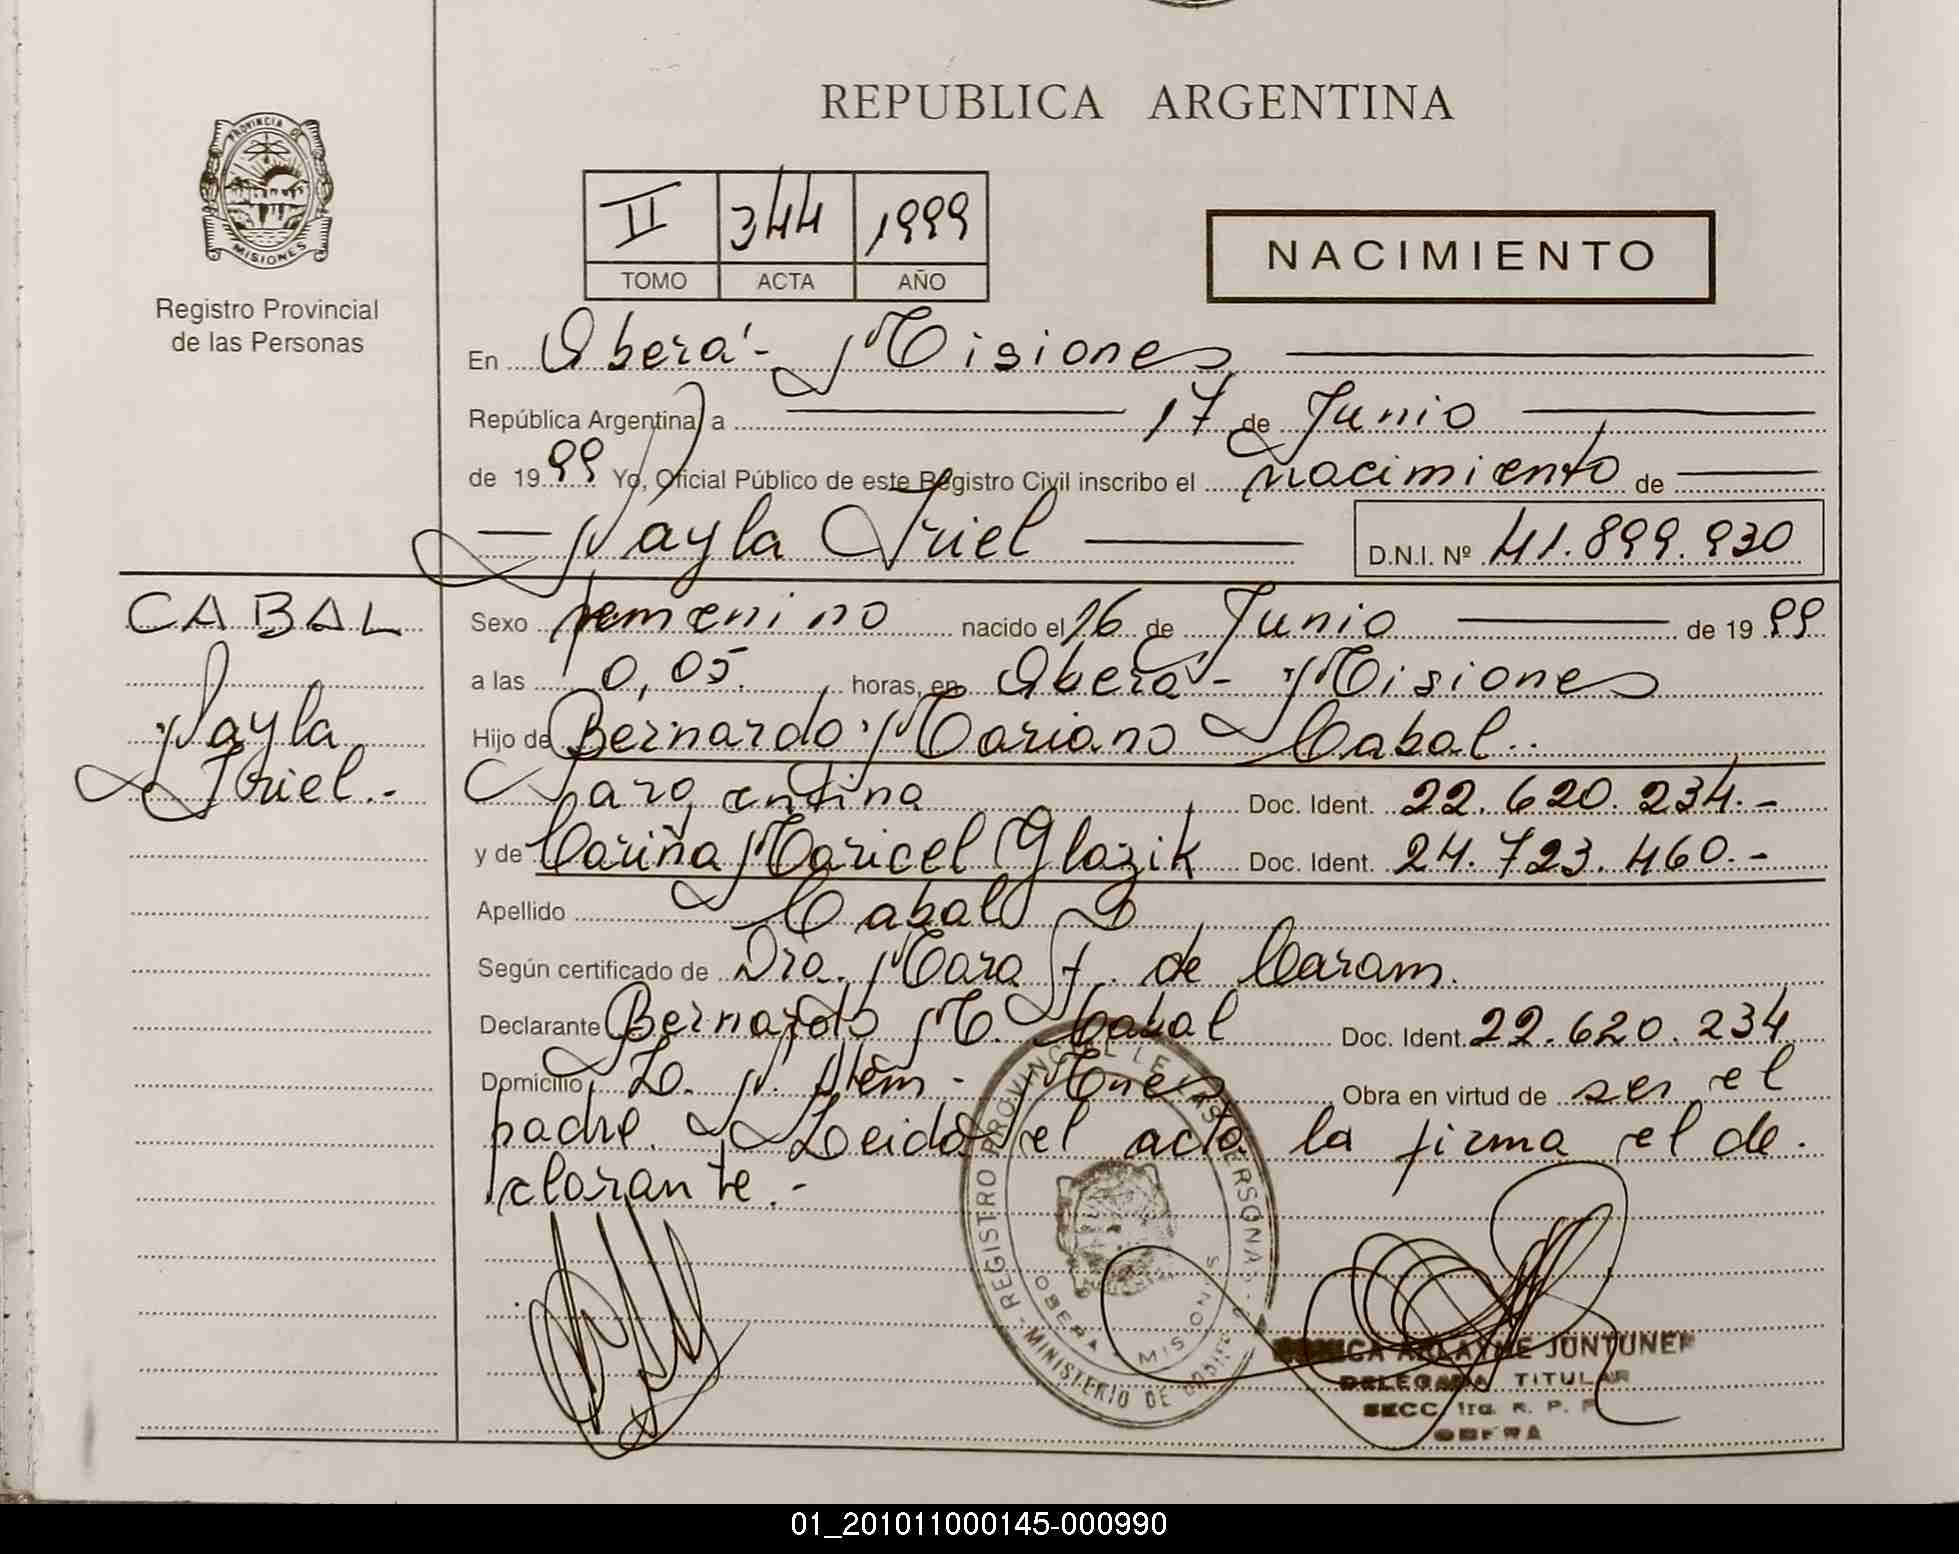 REPUBLICA ARGENTINA
PROVINCIA DE
MISIONES
Registro Provincial
de las Personas
II 344 1999
TOMO ACTA AÑO
NACIMIENTO
En Oberá - Misiones
República Argentina, a 17 de Junio
de 1999 Yo, Oficial Público de este Registro Civil inscribo el nacimiento de
Nayla Iriel D.N.I. Nº 41.899.930
CABAL
Nayla
Iriel.-
Sexo femenino nacido el 16 de Junio de 1999
a las 0,05. horas, en Oberá - Misiones
Hijo de Bernardo Mariano Cabal
argentina Doc. Ident. 22.620.234.-
y de Cariña Maricel Glazik Doc. Ident. 24.723.460.-
Apellido Cabal
Según certificado de Dra. Mara F. de Caram.
Declarante Bernardo M. Cabal Doc. Ident. 22.620.234
Domicilio L. N. Alem - Mnes Obra en virtud de ser el
padre. Leido el acta la firma el de-
clarante.-
REGISTRO PROVINCIAL DE LAS PERSONAS
OBERA - MISIONES
MINISTERIO DE
ARLAYNE JONTUNEN
DELEGADA TITULAR
SECC. 1ra. R. P. P.
OBERA
01_201011000145-000990